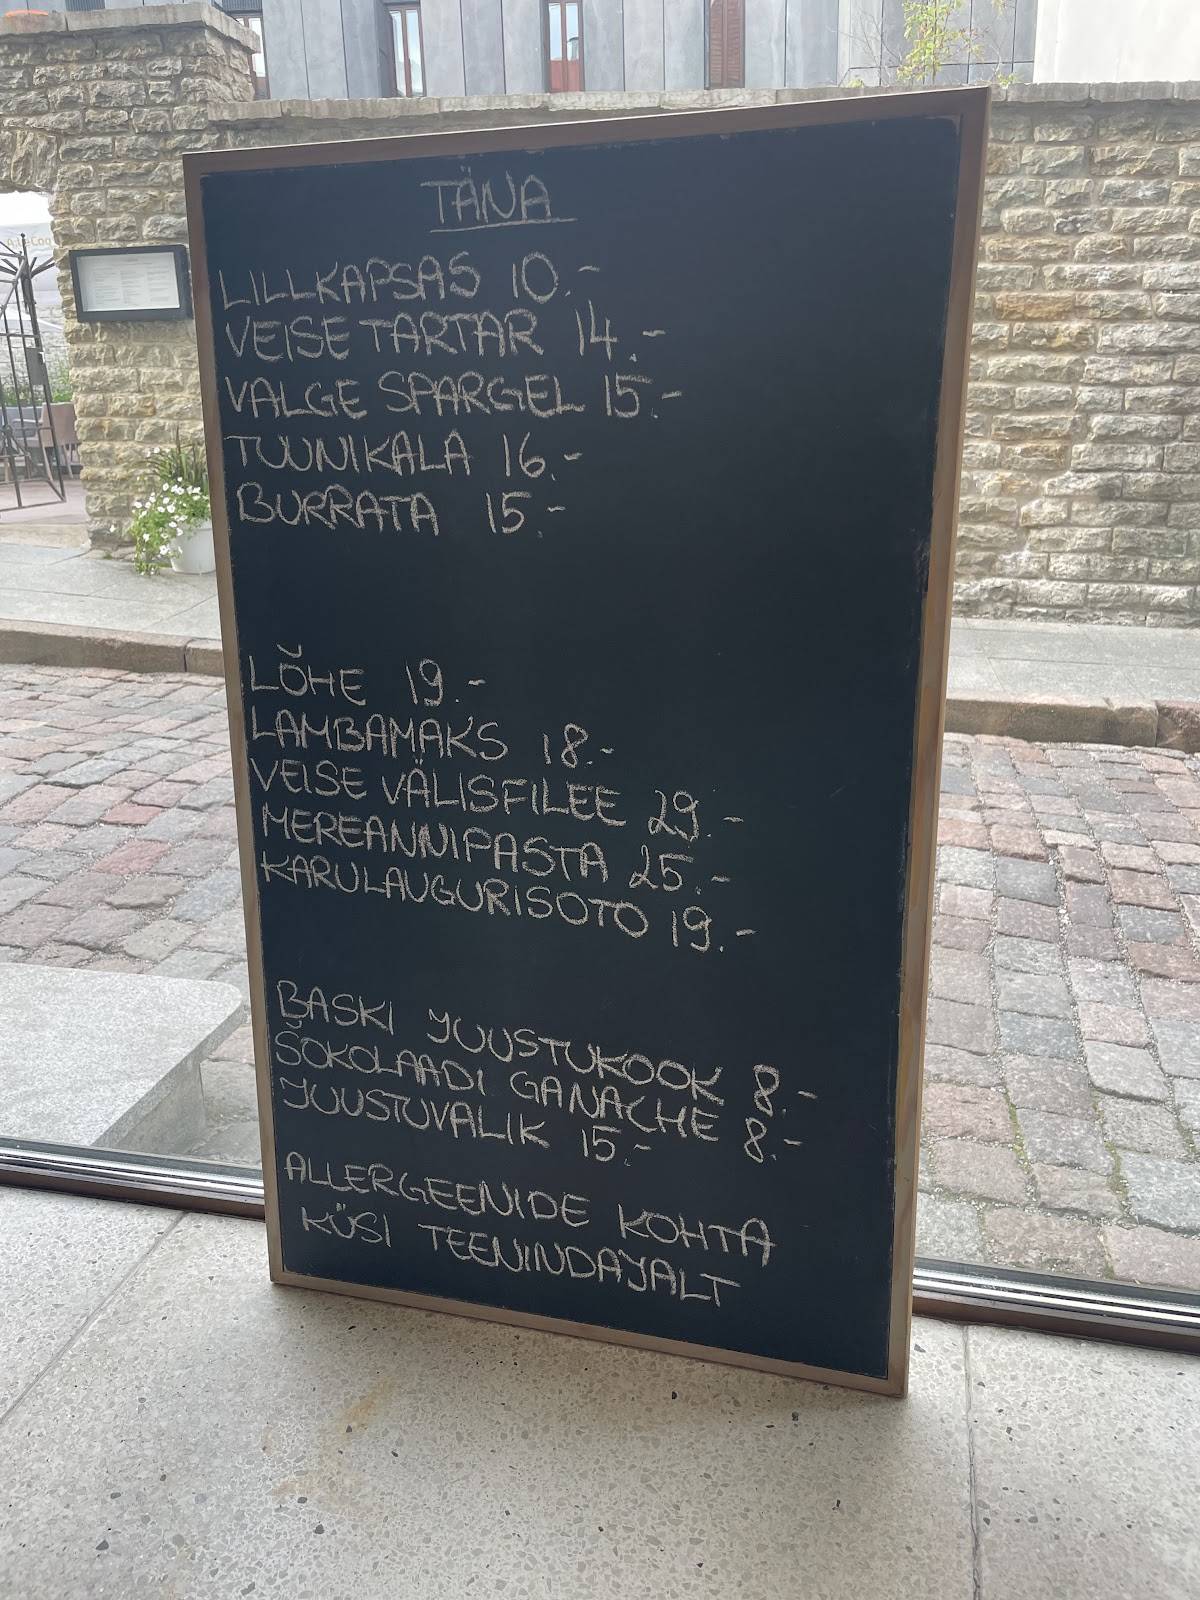 TÄNA
LILLKAPSAS 10.-
VEISE TARTAR 14.-
VALGE SPARGEL 15.-
TUUNIKALA 16.-
BURRATA 15.-
LÕHE 19.-
LAMBAMAKS 18.-
VEISE VÄLISFILEE 29.-
MEREANNIPASTA 25.-
KARULAUGURISOTO 19.-
BASKI JUUSTUKOOK 8.-
ŠOKOLAADI GANACHE 8.-
JUUSTUVALIK 15.-
ALLERGEENIDE KOHTA
KÜSI TEENINDAJALT